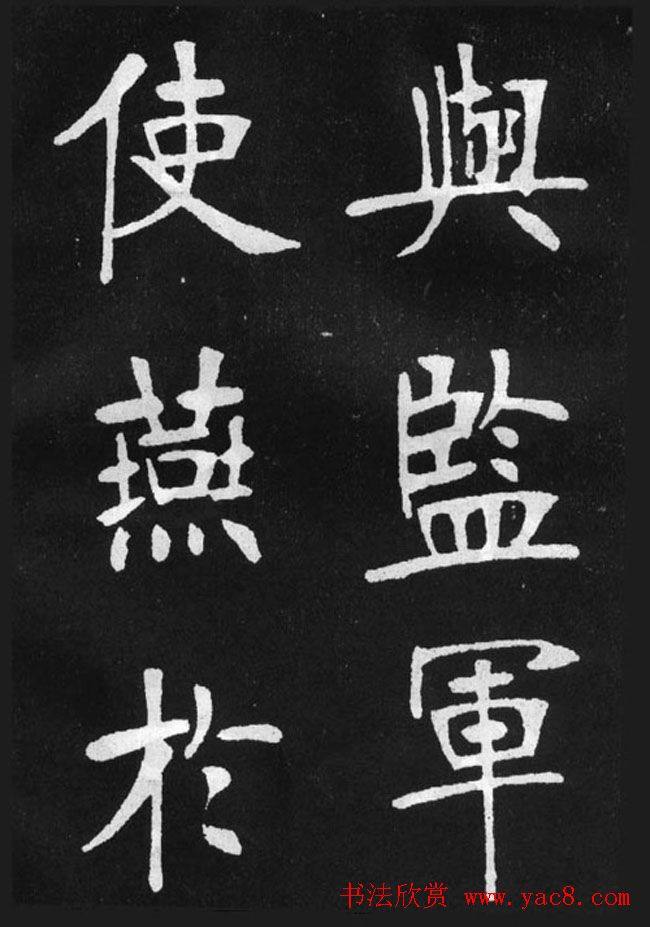 與監軍
使燕於
书法欣赏 www.yac8.com